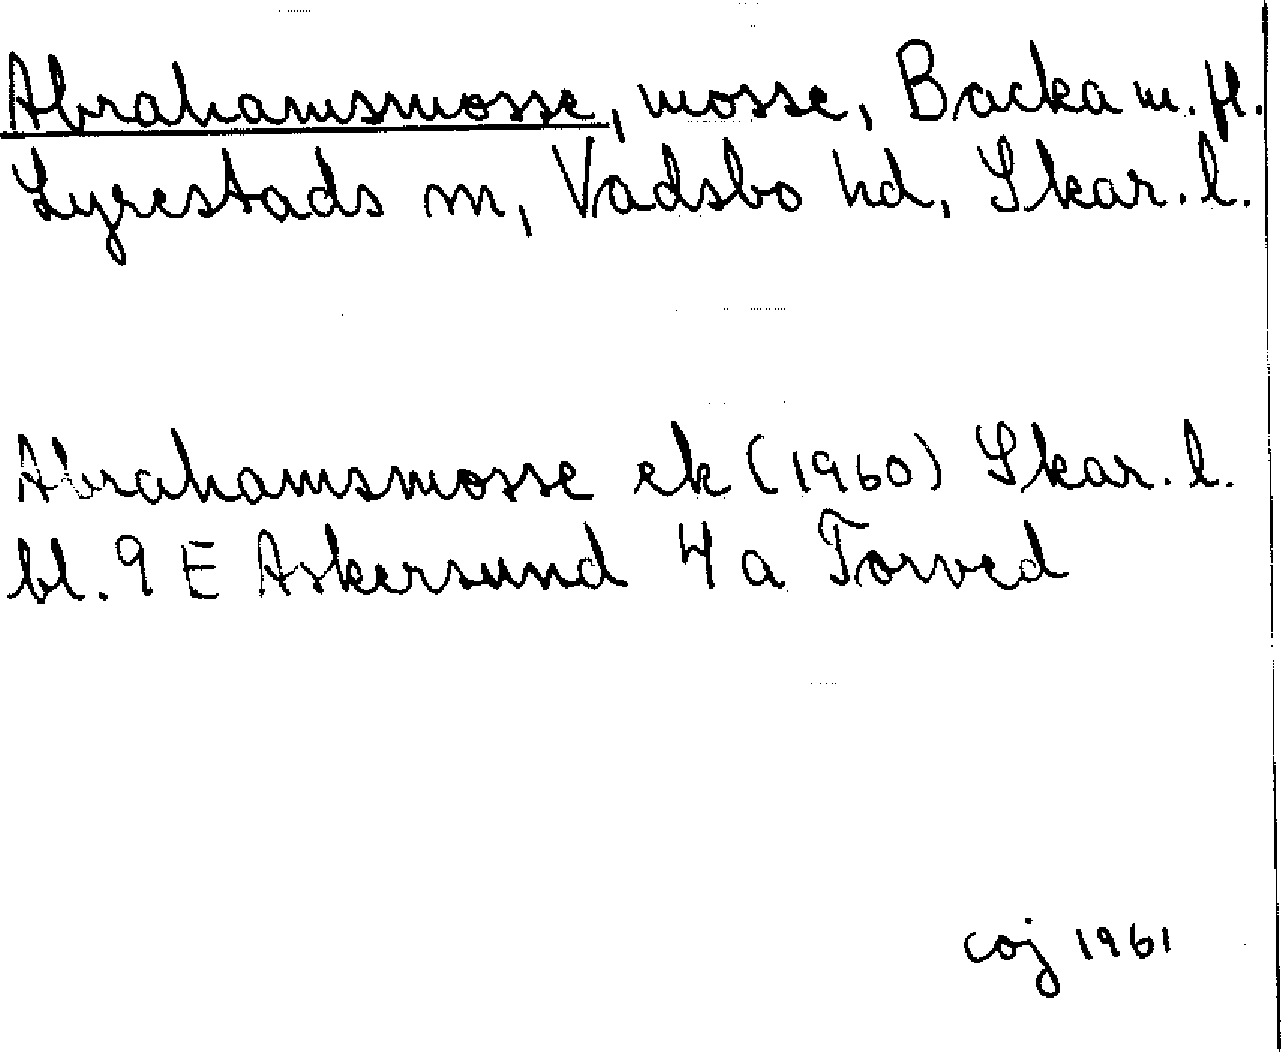 Abrahamsmosse, mosse, Backa m. fl.
Lyrestads sn, Vadsbo hd, Skar. l.
Abrahamsmosse ek (1960) Skar. l.
bl. 9 E Askersund 4 a Torved
coj 1961